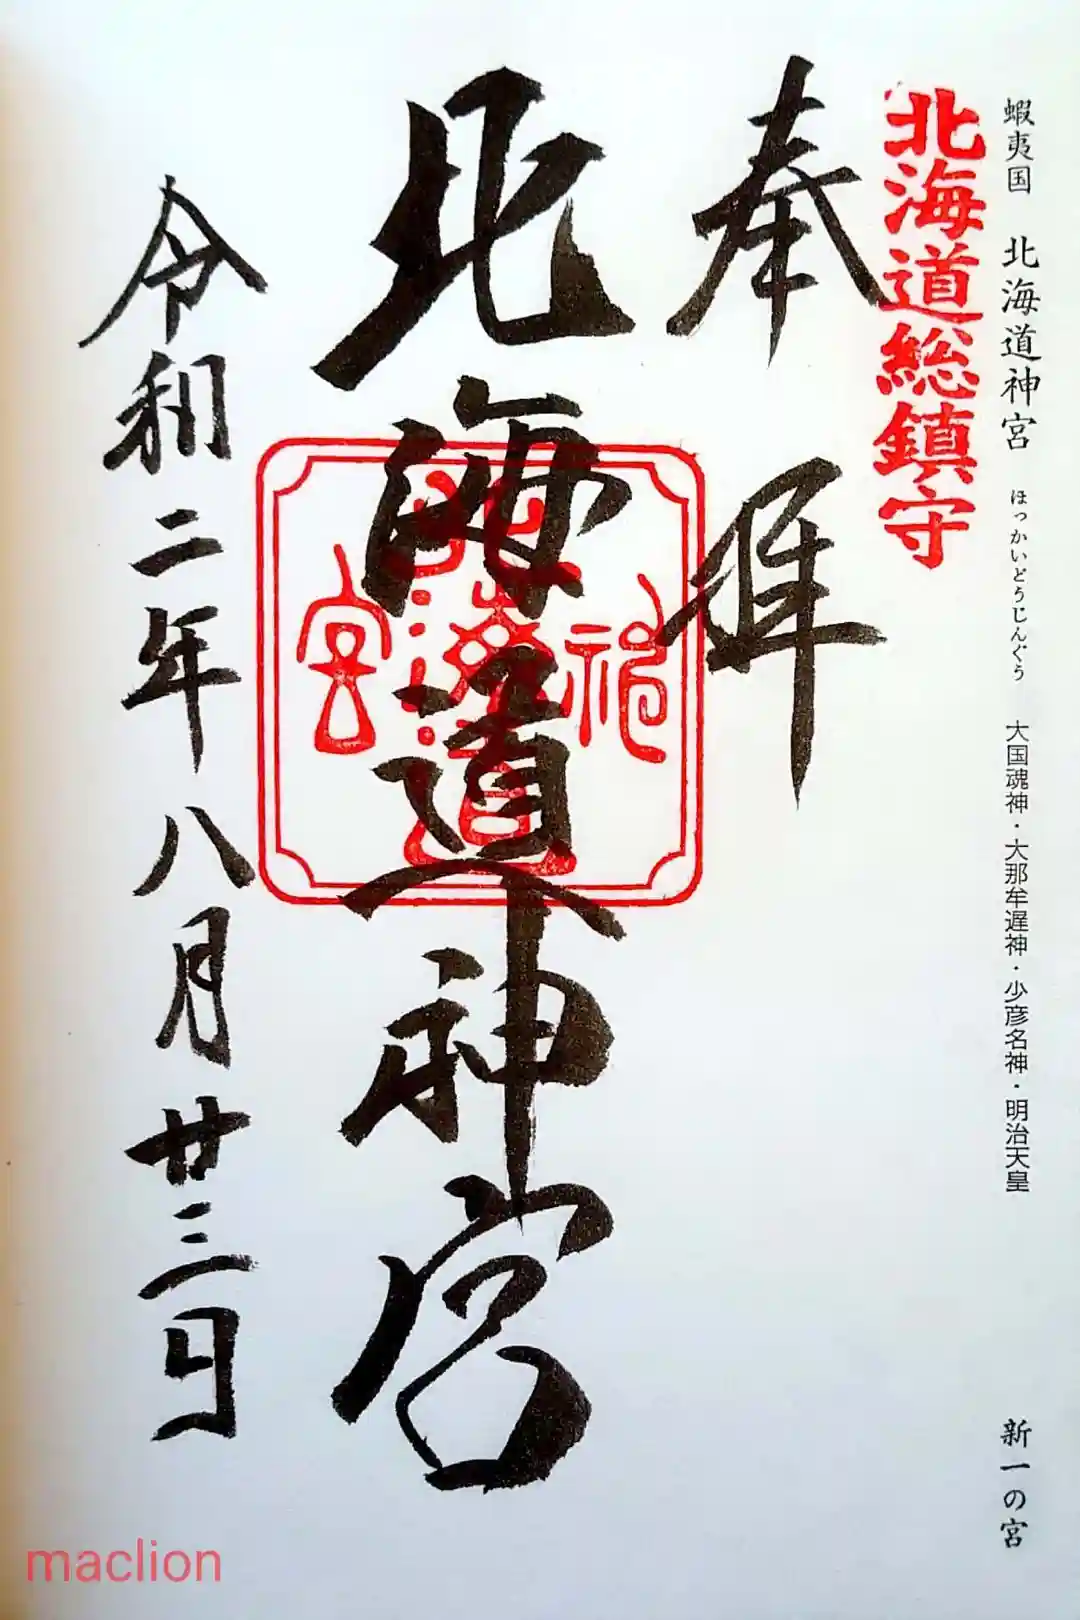 蝦夷国 北海道神宮 ほっかいどうじんぐう 大国魂神・大那牟遅神・少彦名神・明治天皇 新一の宮
北海道総鎮守
奉拝
北海道神宮
北海道神宮
令和二年八月廿三日
maclion